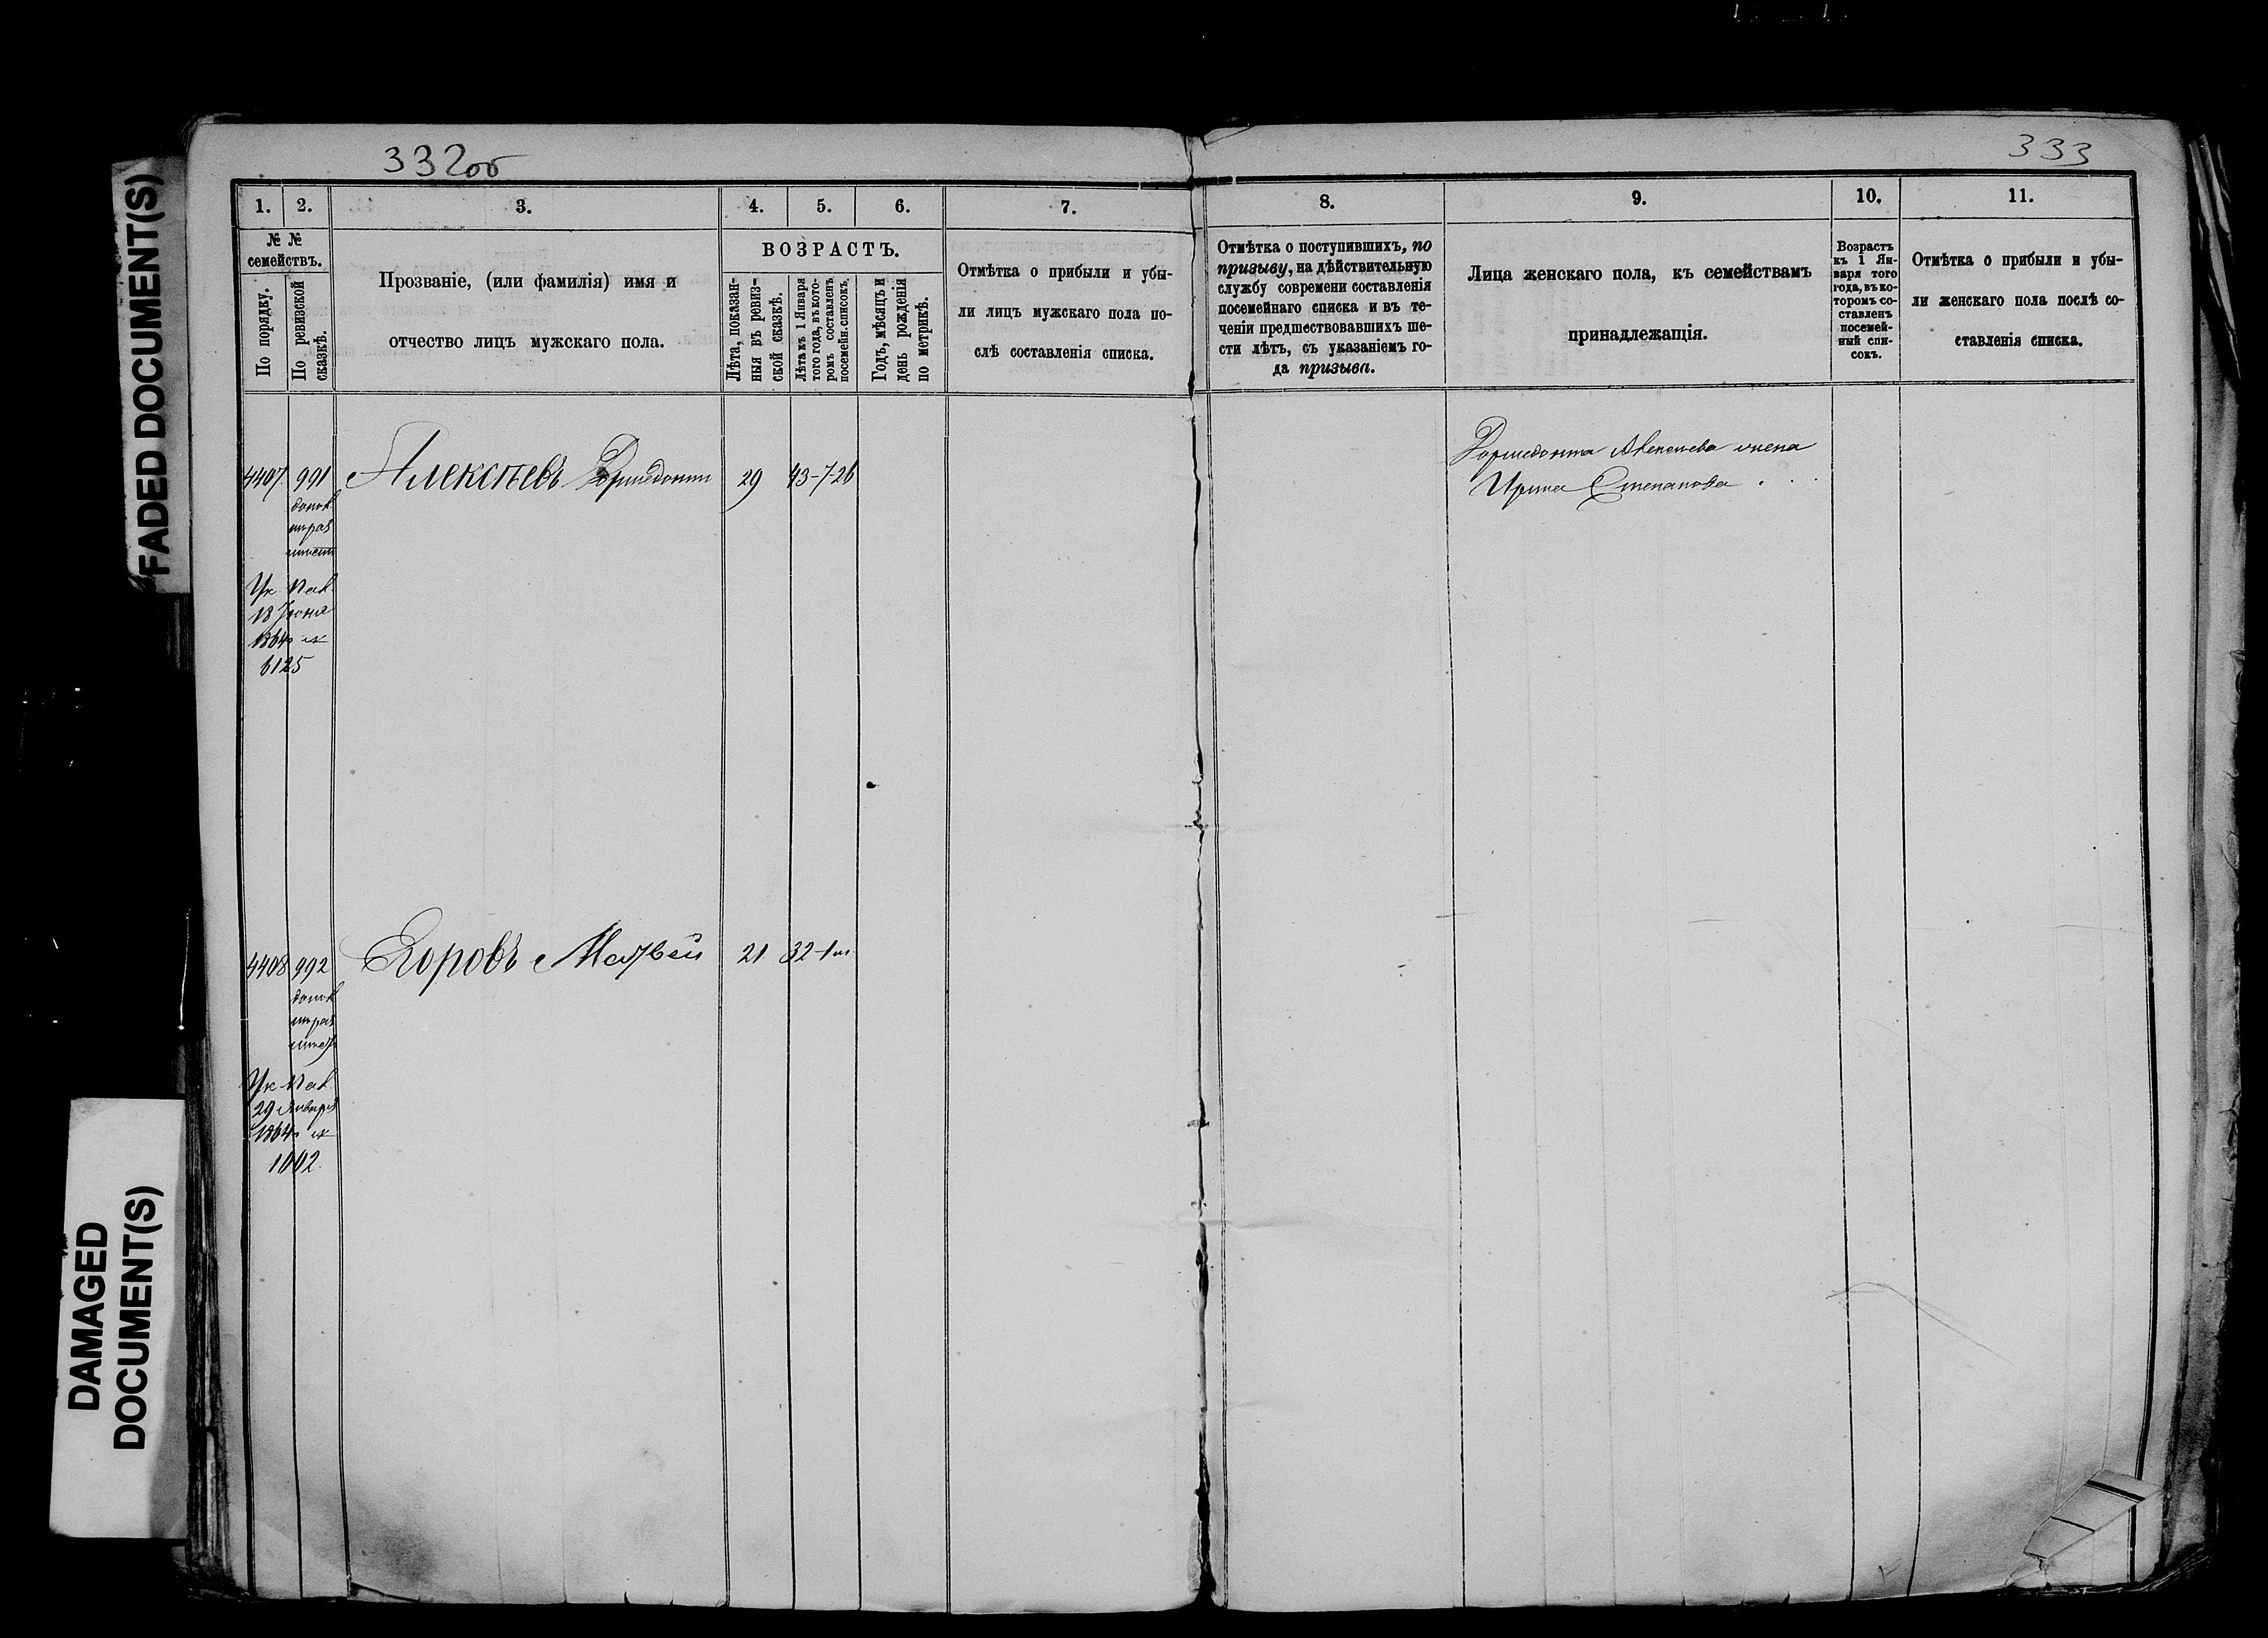 FADED DOCUMENT(S)
DAMAGED
DOCUMENT(S)
332об
333
1. 2. 3. 4. 5. 6. 7.
№ №
семействъ.
По порядку.
По ревизской
сказкѣ.
Прозваніе, (или фамилія) имя и
отчество лицъ мужскаго пола.
ВОЗРАСТЪ.
Лѣта, показан-
ныя въ ревиз-
ской сказкѣ.
Лѣта къ 1 Января
того года, въ кото-
ромъ составленъ
посемейн. списокъ.
Годъ, мѣсяцъ и
день рожденія
по метрикѣ.
Отмѣтка о прибыли и убы-
ли лицъ мужскаго пола по-
слѣ составленія списка.
8. 9. 10. 11.
Отмѣтка о поступившихъ, по
призыву, на дѣйствительную
службу современи составленія
посемейнаго списка и въ те-
ченіи предшествовавшихъ ше-
сти лѣтъ, съ указаніемъ го-
да призыва.
Лица женскаго пола, къ семействамъ
принадлежащія.
Возрастъ
къ 1 Ян-
варя того
года, въ ко-
торомъ со-
ставленъ
посемей-
ный спи-
сокъ.
Отмѣтка о прибыли и убы-
ли женскаго пола послѣ со-
ставленія списка.
4407 991 Алексѣевъ 29 43-7-26
Ук Пал
18 Іюня
1864 №
6125
Алексѣева жена
Ирина Степанова
4408 992 Егоровъ Матвей 21 32-1м
Ук Пал
29 Января
1864 №
1002